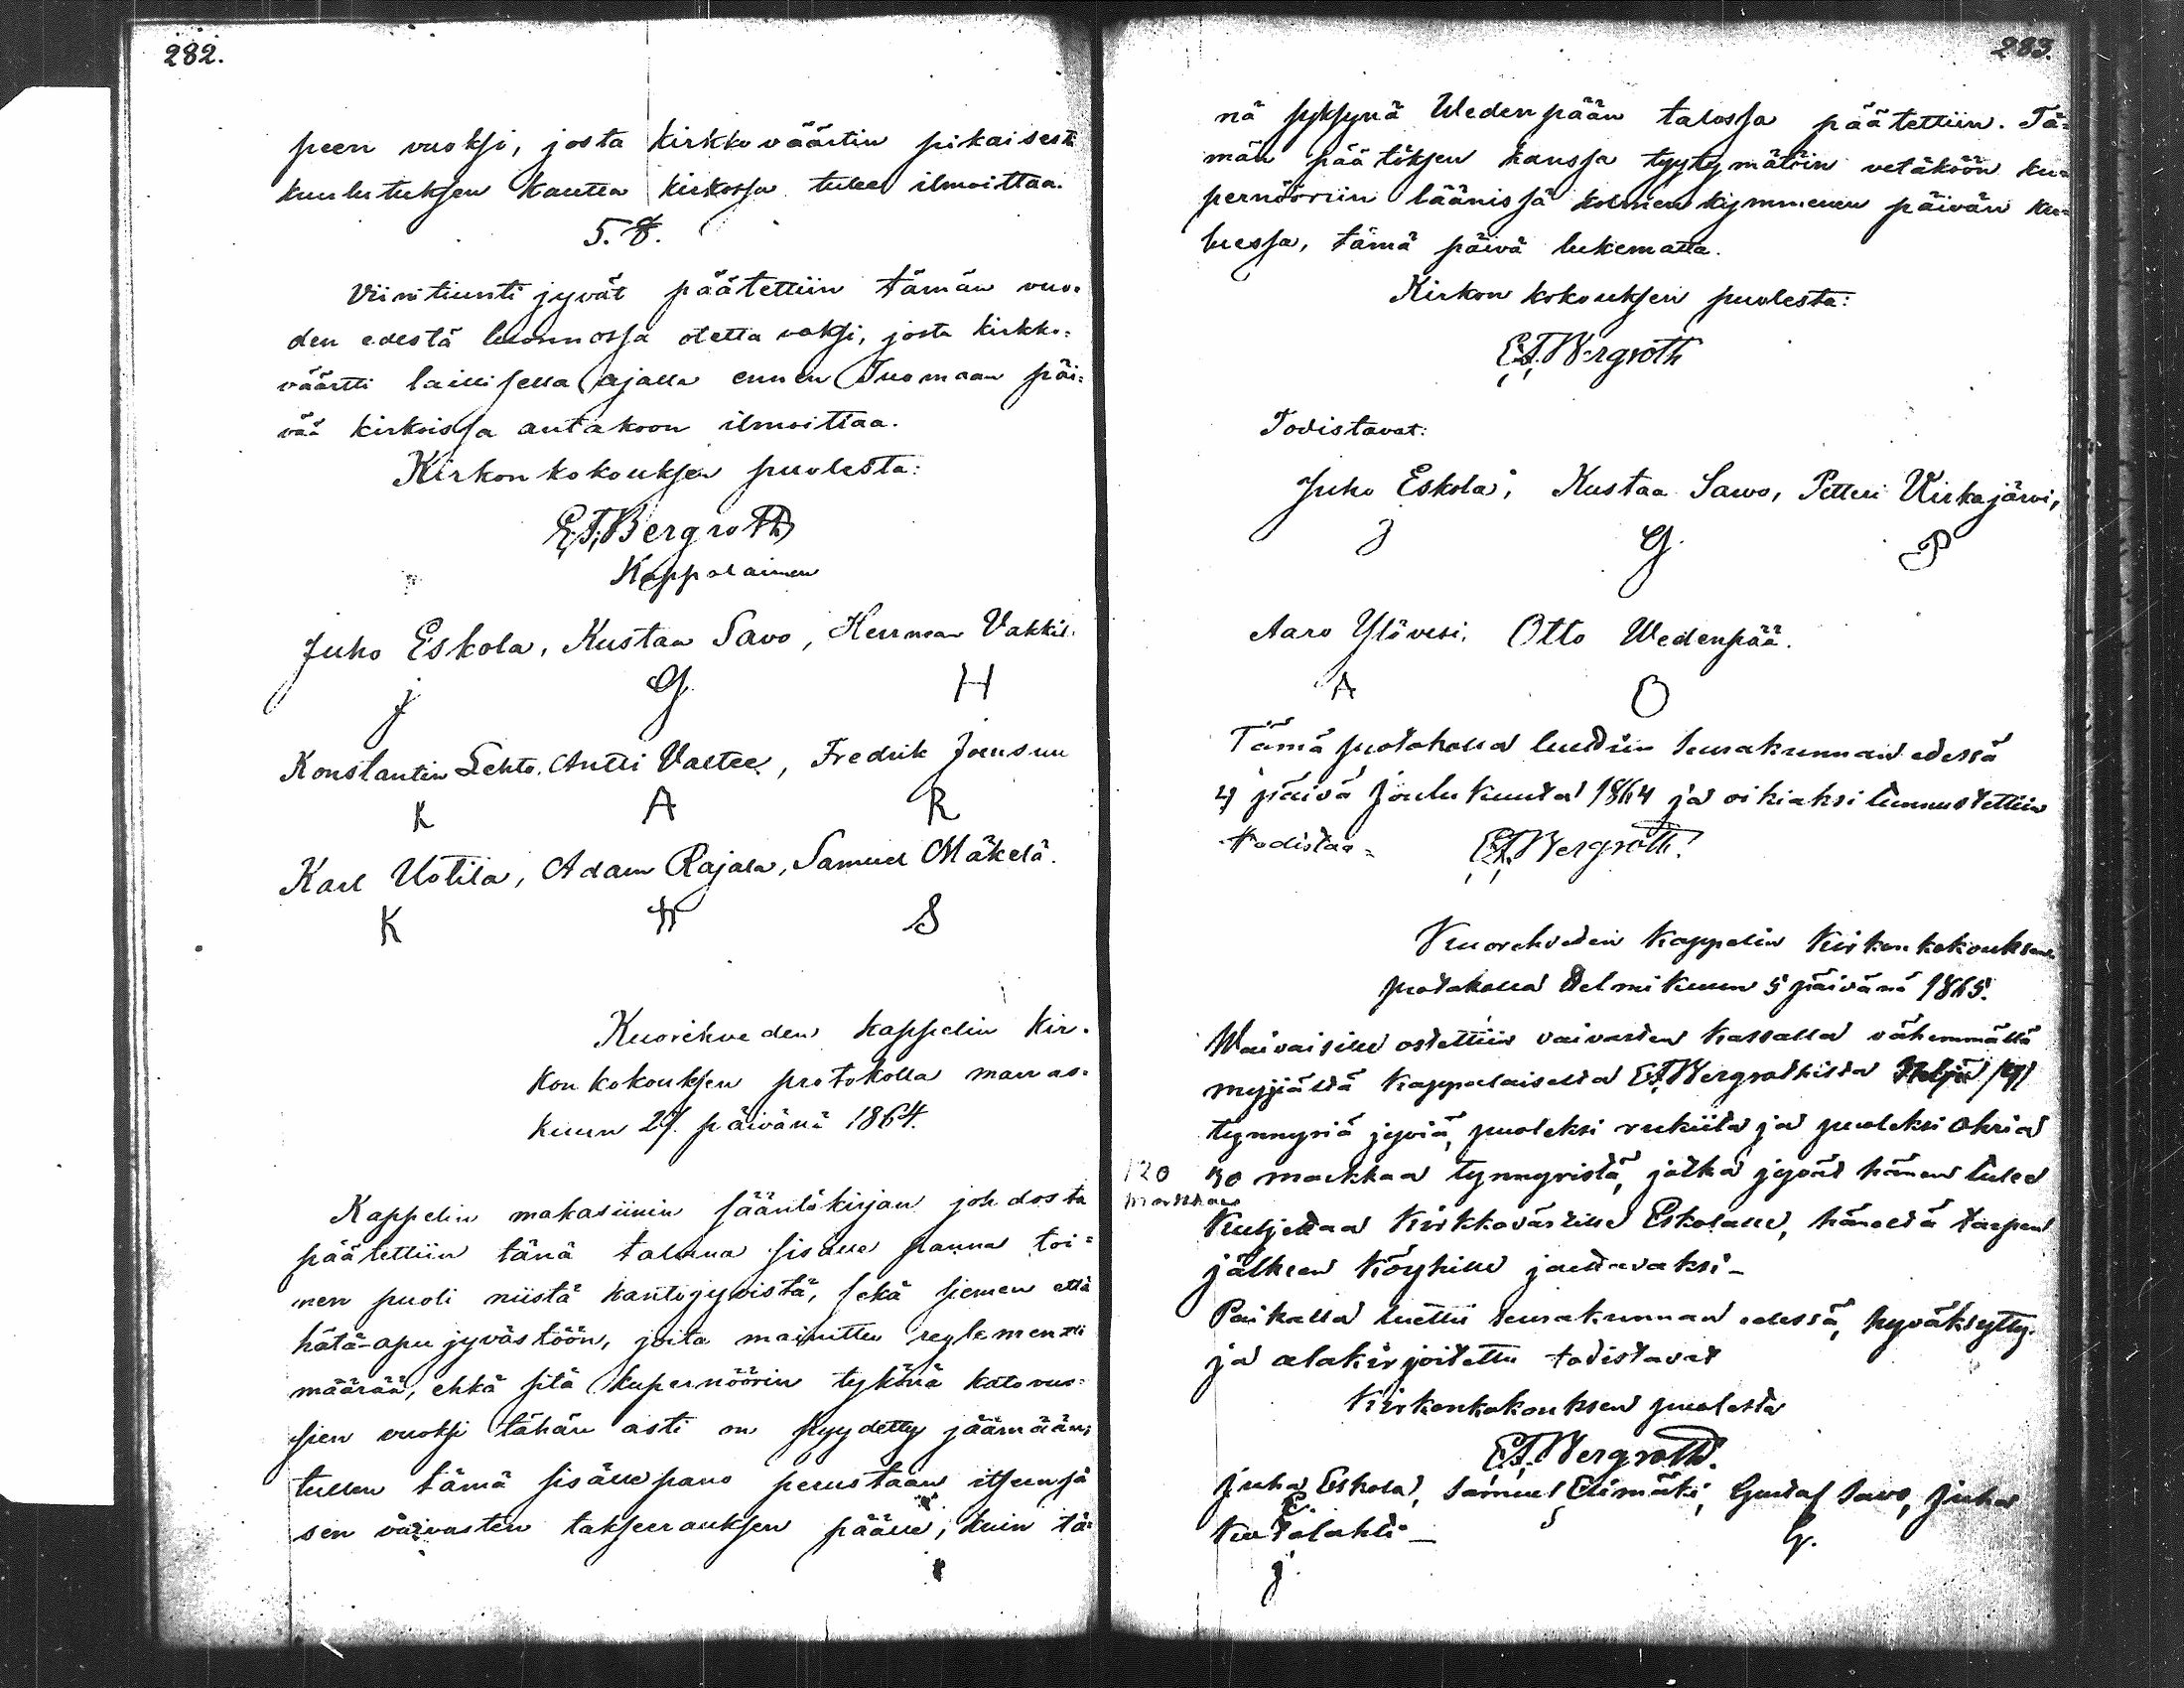 282.
peen vuoksi, josta kirkkoväärtin pikaisesti
kuulutuksen kautta kirkossa tulee ilmoittaa.
5. §.
Viinitiunti jyvät päätettiin tämän vuo-
den edestä luonnossa otettavaksi, josta kirkko=
väärtti laillisella ajalla ennen Tuomaan päi=
vää kirkoissa antakoon ilmoittaa.
Kirkon kokouksen puolesta:
E.J. Bergroth
Kappalainen
Juho Eskola, Kustaa Savo, Herman Vakkil.
J G. H
Konstantin Lehto. Antti Valtee, Fredrik Jonsuu
K A R
Karl Uotila, Adam Rajala, Samuel Mäkelä.
K A S
Kuorehveden kappelin Kir-
kon kokouksen protokolla marras-
kuun 27. päivänä 1864.
Kappelin makasiinin sääntökirjan johdosta
päätettiin tänä talvena sisälle panna toi=
nen puoli niistä kantojyvistä, sekä siemen että
hätä-apu jyvästöön, joita mainittu reglementti
määrää, ehkä sitä kupernöörin tykönä katovuo-
sien vuoksi tähän asti on pyydetty jäämään,
tullen tämä sisällepano perustaan itseensä
sen vaivasten takseerauksen päälle, kuin tä=
283.
nä syksynä Wedenpään talossa päätettiin. Tä=
män päätöksen kanssa tyytymätöin vetäköön ku=
pernööriin läänissä kolmenkymmenen päivän ku=
luessa, tämä päivä lukematta.
Kirkon kokouksen puolesta:
E.J. Bergroth
Todistavat:
Juho Eskola, Kustaa Sawo, Petteri Kirkajärvi,
J G. P
Aaro Ylövesi, Otto Wedenpää.
A O
Tämä protokolla luettiin seurakunnan edessä
4 päivä Joulukuuta 1864 ja oikiaksi tunnustettiin
todistaa= E.J. Bergroth.
Kuorehveden Kappelin Kirkon kokouksen
protokolla Helmikuun 5 päivänä 1865.
Waivaisille ostettiin vaivasten kassalla vähemmällä
myyjältä Kappalaiselta E.J. Bergrothilta Neljä /4/
tynnyriä jyviä, puoleksi rukiita ja puoleksi ohria
120 30 markkaa tynnyristä, jotka jyvät hänen tulee
markkaa
Kuljettaa Kirkkovärtille Eskolalle, häneltä tarpen
jälkeen Köyhille jaettavaksi-
Paikalla luettu seurakunnan edessä, hyväksytty
ja alakirjoitettu todistavat
Kirkonkokouksen puolesta
E.J. Bergroth.
Juha Eskola, Samuel Elimäki, Gustaf Savo, Juha
E. S G.
Kutalahti-
J.